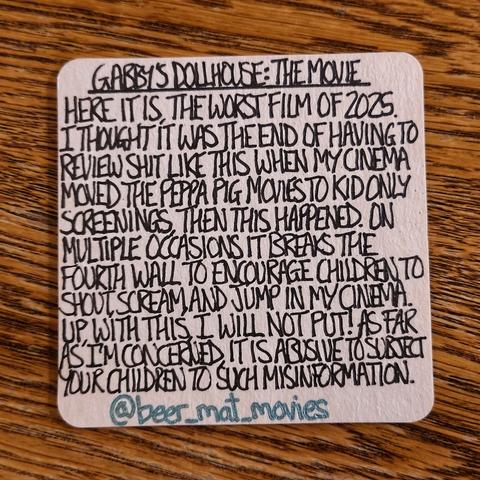 GABBY'S DOLLHOUSE: THE MOVIE
HERE IT IS, THE WORST FILM OF 2025.
I THOUGHT IT WAS THE END OF HAVING TO
REVIEW SHIT LIKE THIS WHEN MY CINEMA
MOVED THE PEPPA PIG MOVIES TO KID ONLY
SCREENINGS, THEN THIS HAPPENED. ON
MULTIPLE OCCASIONS IT BREAKS THE
FOURTH WALL TO ENCOURAGE CHILDREN TO
SHOUT, SCREAM, AND JUMP IN MY CINEMA.
UP, WITH THIS, I WILL NOT PUT! AS FAR
AS I'M CONCERNED, IT IS ABUSIVE TO SUBJECT
YOUR CHILDREN TO SUCH MISINFORMATION.
@beer_mat_movies